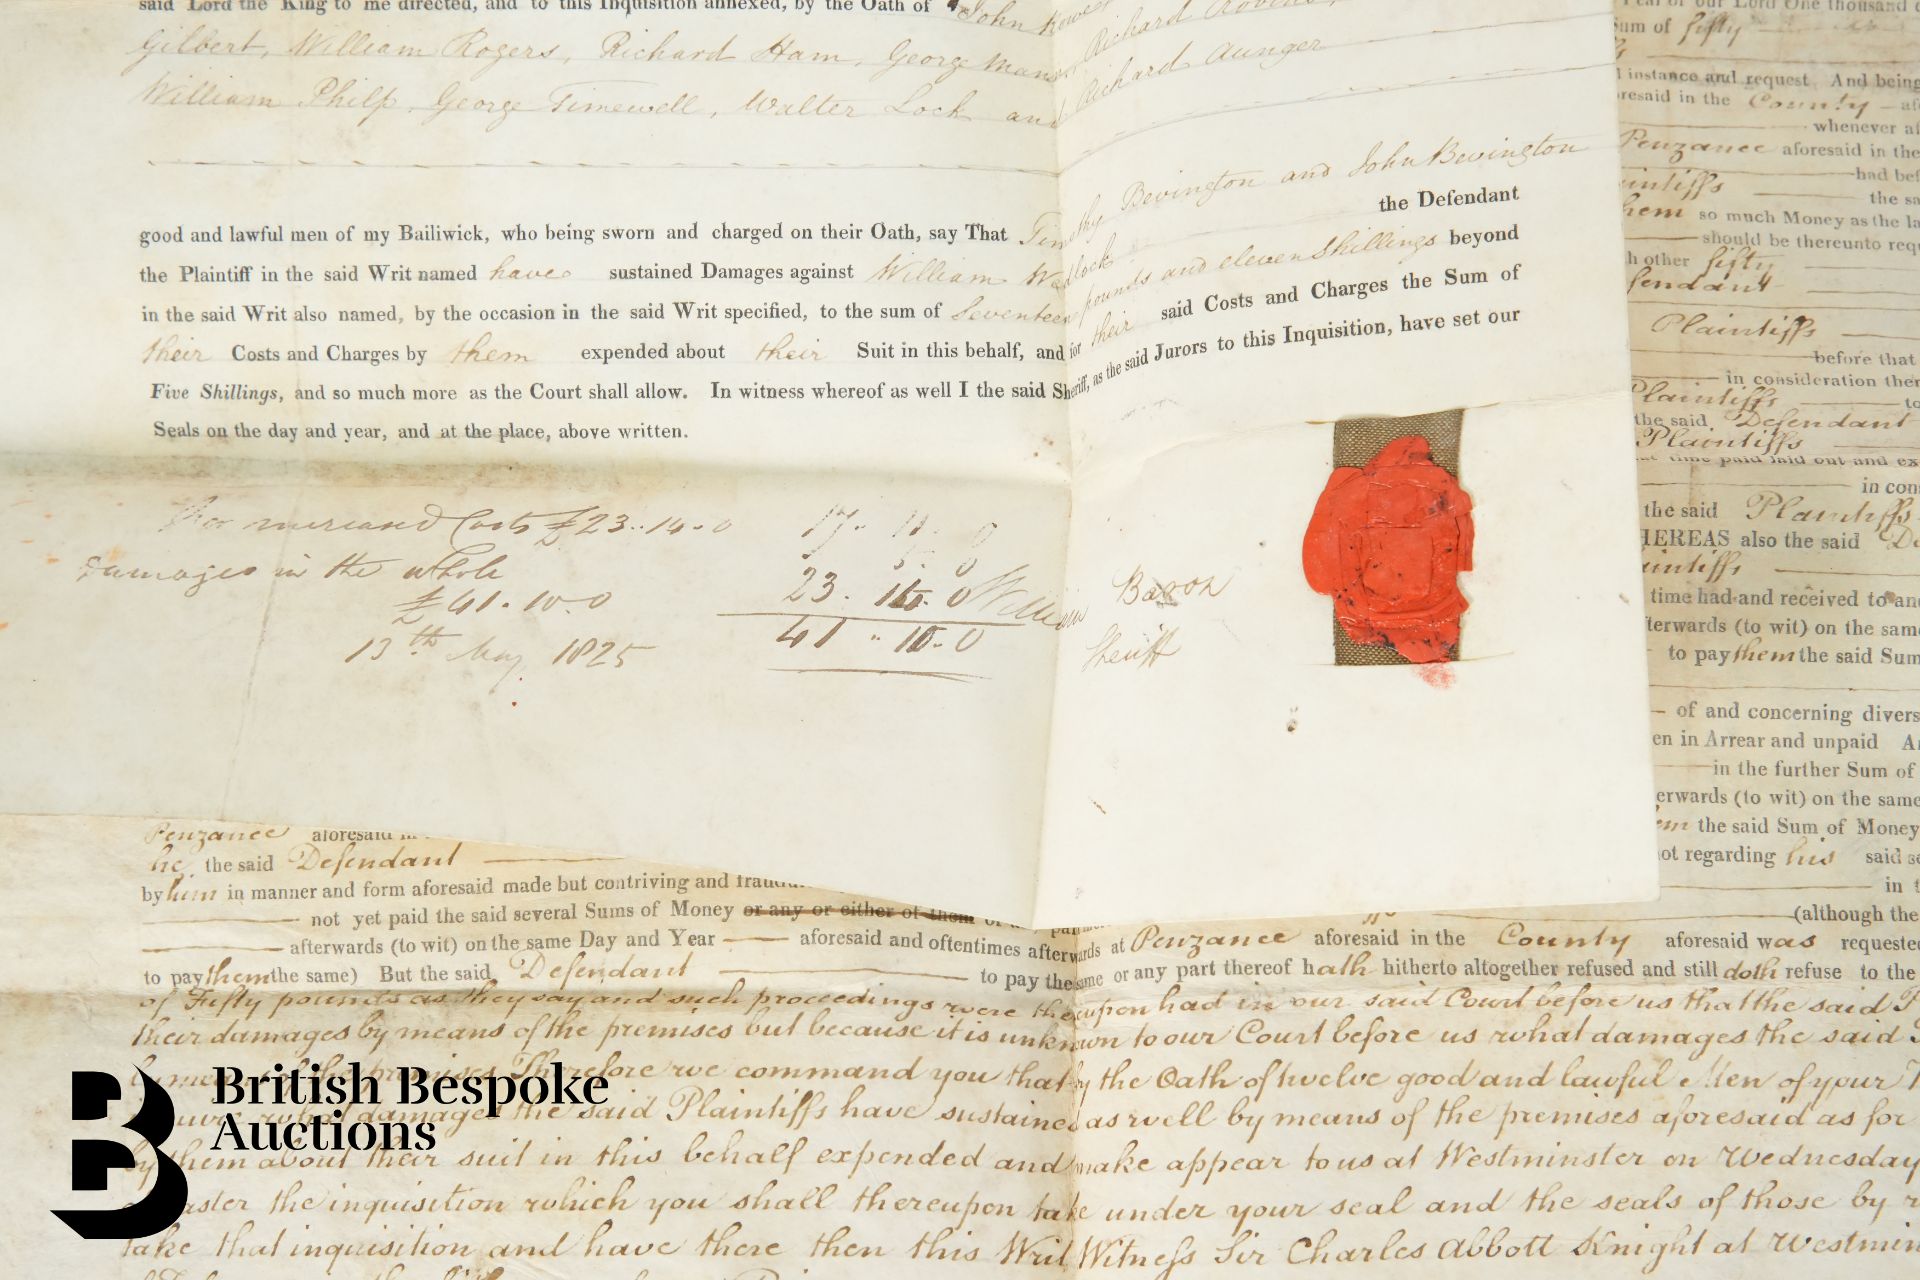 said Lord the King to me directed, and to this Inquisition annexed, by the Oath of John
Gilbert, William Rogers, Richard Ham, George Richard
William Philp, George Timewell, Walter Lock and Richard Aunger
good and lawful men of my Bailiwick, who being sworn and charged on their Oath, say That Timothy Bevington and John Bevington
the Plaintiff in the said Writ named have sustained Damages against William Wedlock the Defendant
in the said Writ also named, by the occasion in the said Writ specified, to the sum of Seventeen pounds and eleven shillings beyond
their Costs and Charges by them expended about their Suit in this behalf, and for their said Costs and Charges the Sum of
Five Shillings, and so much more as the Court shall allow. In witness whereof as well I the said Sheriff, as the said Jurors to this Inquisition, have set our
Seals on the day and year, and at the place, above written.
For increased Costs £23..14..0
Damages in the whole
£41.10.0
13th May 1825
17. 11. 0
5. 0
23. 14. 0
41 .. 10. 0
William Baron
Sheriff
Year of our Lord One thousand
Sum of fifty
instance and request And being
aforesaid in the County
whenever
Penzance aforesaid in the
had
Plaintiffs the
them so much Money as the
should be thereunto
other fifty
Defendant
Plaintiffs
before that
in consideration
Plaintiffs to
the said Defendant
Plaintiffs
time paid laid out and
in
the said Plaintiffs
WHEREAS also the said
Plaintiffs
time had and received to
afterwards (to wit) on the same
to pay them the said Sum
of and concerning divers
in Arrear and unpaid
in the further Sum of
afterwards (to wit) on the same
them the said Sum of Money
not regarding his said
in
(although the
Penzance aforesaid in
he the said Defendant
by him in manner and form aforesaid made but contriving and
not yet paid the said several Sums of Money or any or either of them or
afterwards (to wit) on the same Day and Year aforesaid and oftentimes afterwards at Penzance aforesaid in the County aforesaid was requested
to pay them the same) But the said Defendant to pay the same or any part thereof hath hitherto altogether refused and still doth refuse to the
of Fifty pounds as they say and such proceedings were thereupon had in our said Court before us that the said
their damages by means of the premises but because it is unknown to our Court before us what damages the said
by means of the premises Therefore we command you that by the Oath of twelve good and lawful Men of your
what damages the said Plaintiffs have sustained as well by means of the premises aforesaid as for
by them about their suit in this behalf expended and make appear to us at Westminster on Wednesday
Easter the inquisition which you shall thereupon take under your seal and the seals of those by
take that inquisition and have there then this Writ Witness Sir Charles Abbott Knight at
British Bespoke
Auctions